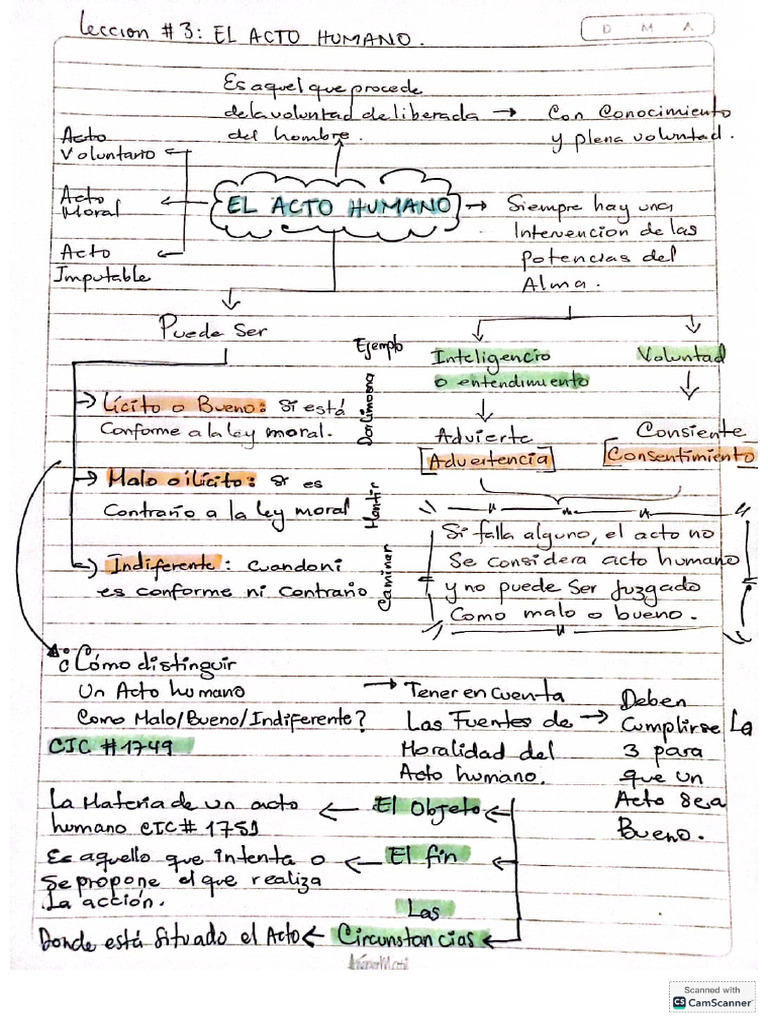 Leccion #3: EL ACTO HUMANO.
D M A
Es aquel que procede
de la voluntad deliberada → Con Conocimiento
del hombre.
y plena voluntad.
Acto
Voluntario
Acto
Moral
Acto
Imputable
EL ACTO HUMANO
Siempre hay una
Intervencion de las
potencias del
Alma.
Puede Ser
Ejemplo
Inteligencia
o entendimiento
Voluntad
Advierte
Advertencia
Consiente
Consentimiento
Lícito o Bueno: Si está
Conforme a la ley moral.
Dar limosna
Malo o ilícito: si es
Contrario a la ley moral
Mentir
Indiferente: Cuando ni
es conforme ni contrario
Caminar
Si falla alguno, el acto no
Se considera acto humano
y no puede Ser Juzgado
Como malo o bueno.
¿Cómo distinguir
Un Acto humano
Como Malo/Bueno/Indiferente?
CIC #1749
Tener en cuenta
Las Fuentes de
Moralidad del
Acto humano.
Deben
Cumplirse La
3 para
que un
Acto Sea
Bueno.
El Objeto
La Materia de un acto
humano CIC # 1751
El fin
Es aquello que intenta o
Se propone el que realiza
La acción.
Las
Circunstancias
Donde está Situado el Acto
Scanned with
CS CamScanner